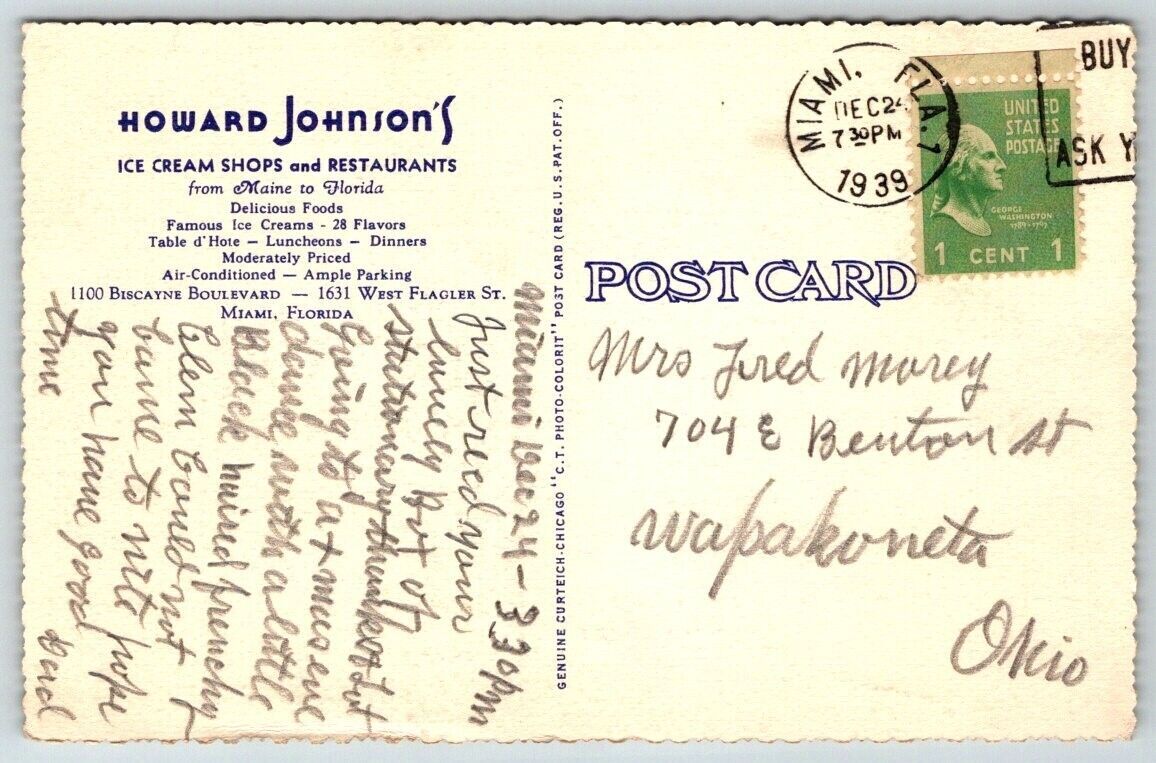 HOWARD JOHNSON'S
ICE CREAM SHOPS and RESTAURANTS
from Maine to Florida
Delicious Foods
Famous Ice Creams - 28 Flavors
Table d'Hote — Luncheons — Dinners
Moderately Priced
Air-Conditioned — Ample Parking
1100 BISCAYNE BOULEVARD — 1631 WEST FLAGLER ST.
MIAMI, FLORIDA
Miami Dec 24 - 3 30 Pm
Just recd your
lovely Bot of
stationary thanks
Going to a
dance with a little
Black haired frenchy
Glenn Could not
came to nite hope
you have good
time
GENUINE CURTEICH-CHICAGO "C.T. PHOTO-COLORIT" POST CARD (REG. U.S. PAT. OFF.)
MIAMI, FLA. 1
DEC 24
7 30 PM
1939
BUY
ASK Y
UNITED
STATES
POSTAGE
GEORGE
WASHINGTON
1789-1797
1 CENT 1
POST CARD
Mrs Fred Morey
704 E Benton st
Wapakoneta
Ohio